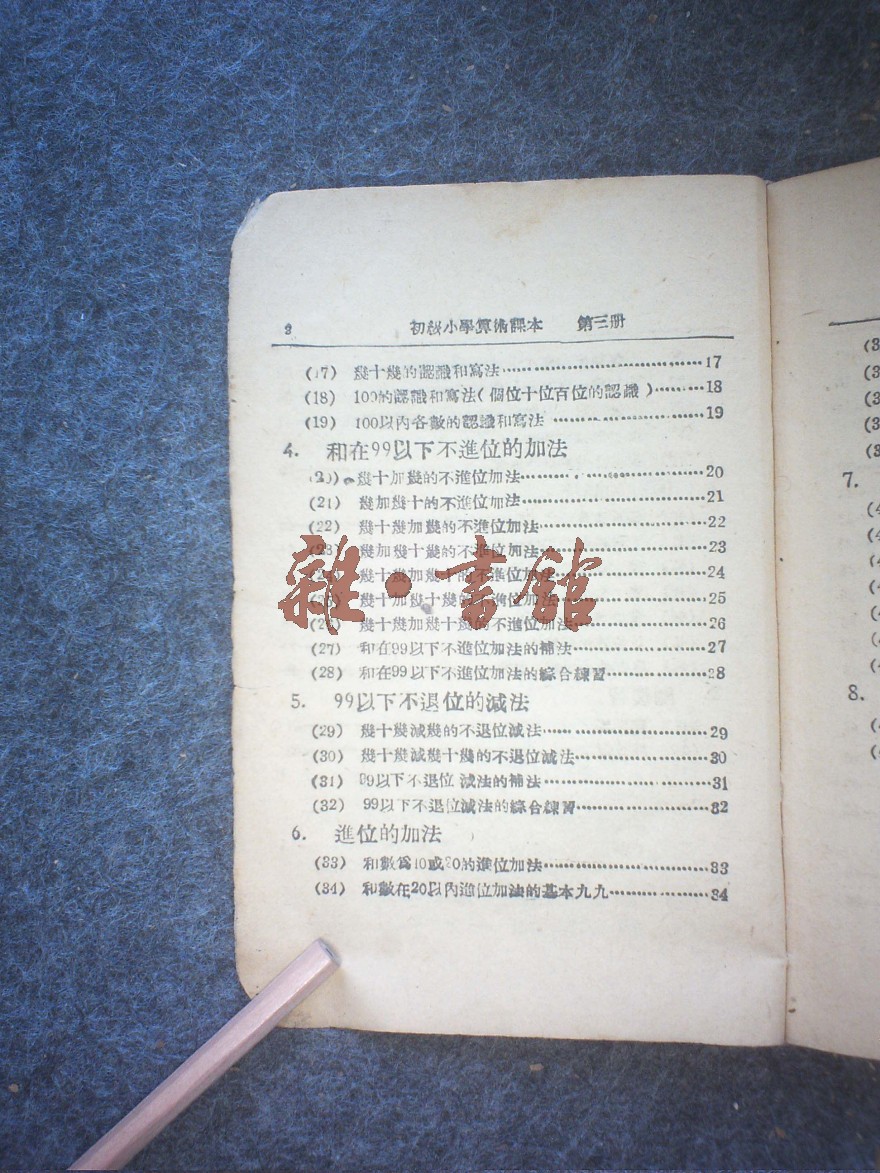 2 初級小學算術課本 第三册
(17) 幾十幾的認識和寫法……17
(18) 100的認識和寫法(個位十位百位的認識)……18
(19) 100以內各數的認識和寫法……19
4. 和在99以下不進位的加法
(20) 幾十加幾的不進位加法……20
(21) 幾加幾十的不進位加法……21
(22) 幾十幾加幾的不進位加法……22
(23) 幾加幾十幾的不進位加法……23
幾十幾加幾十的不進位加法……24
幾十加幾十幾的不進位加法……25
(26) 幾十幾加幾十幾的不進位加法……26
(27) 和在99以下不進位加法的補法……27
(28) 和在99以下不進位加法的綜合練習……28
5. 99以下不退位的減法
(29) 幾十幾減幾的不退位減法……29
(30) 幾十幾減幾十幾的不退位減法……30
(31) 99以下不退位減法的補法……31
(32) 99以下不退位減法的綜合練習……32
6. 進位的加法
(33) 和數爲10或20的進位加法……33
(34) 和數在20以內進位加法的基本九九……34
雜·書館
7.
8.